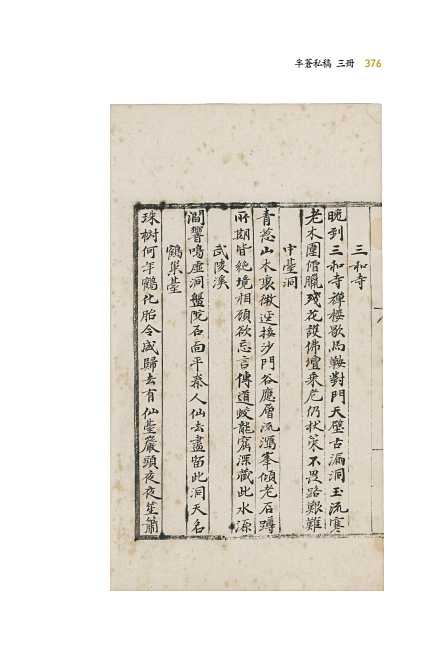 半蒼私稿 三冊 376
三和寺
晩到三和寺禪樓歇馬鞍對門天壁古漏洞玉流寒
老木圍僧臘殘花護佛壇乘危仍杖策不畏路艱難
中臺洞
青葱山木裏微逕接沙門谷應層流瀉峯傾老石蹲
所期皆絶境相顧欲忘言傳道蛟龍窟深藏此水源
武陵溪
澗響鳴虛洞盤陀石面平秦人仙去盡留此洞天名
鶴巢臺
珠樹何年鶴化胎令威歸去有仙臺巖頭夜夜笙簫